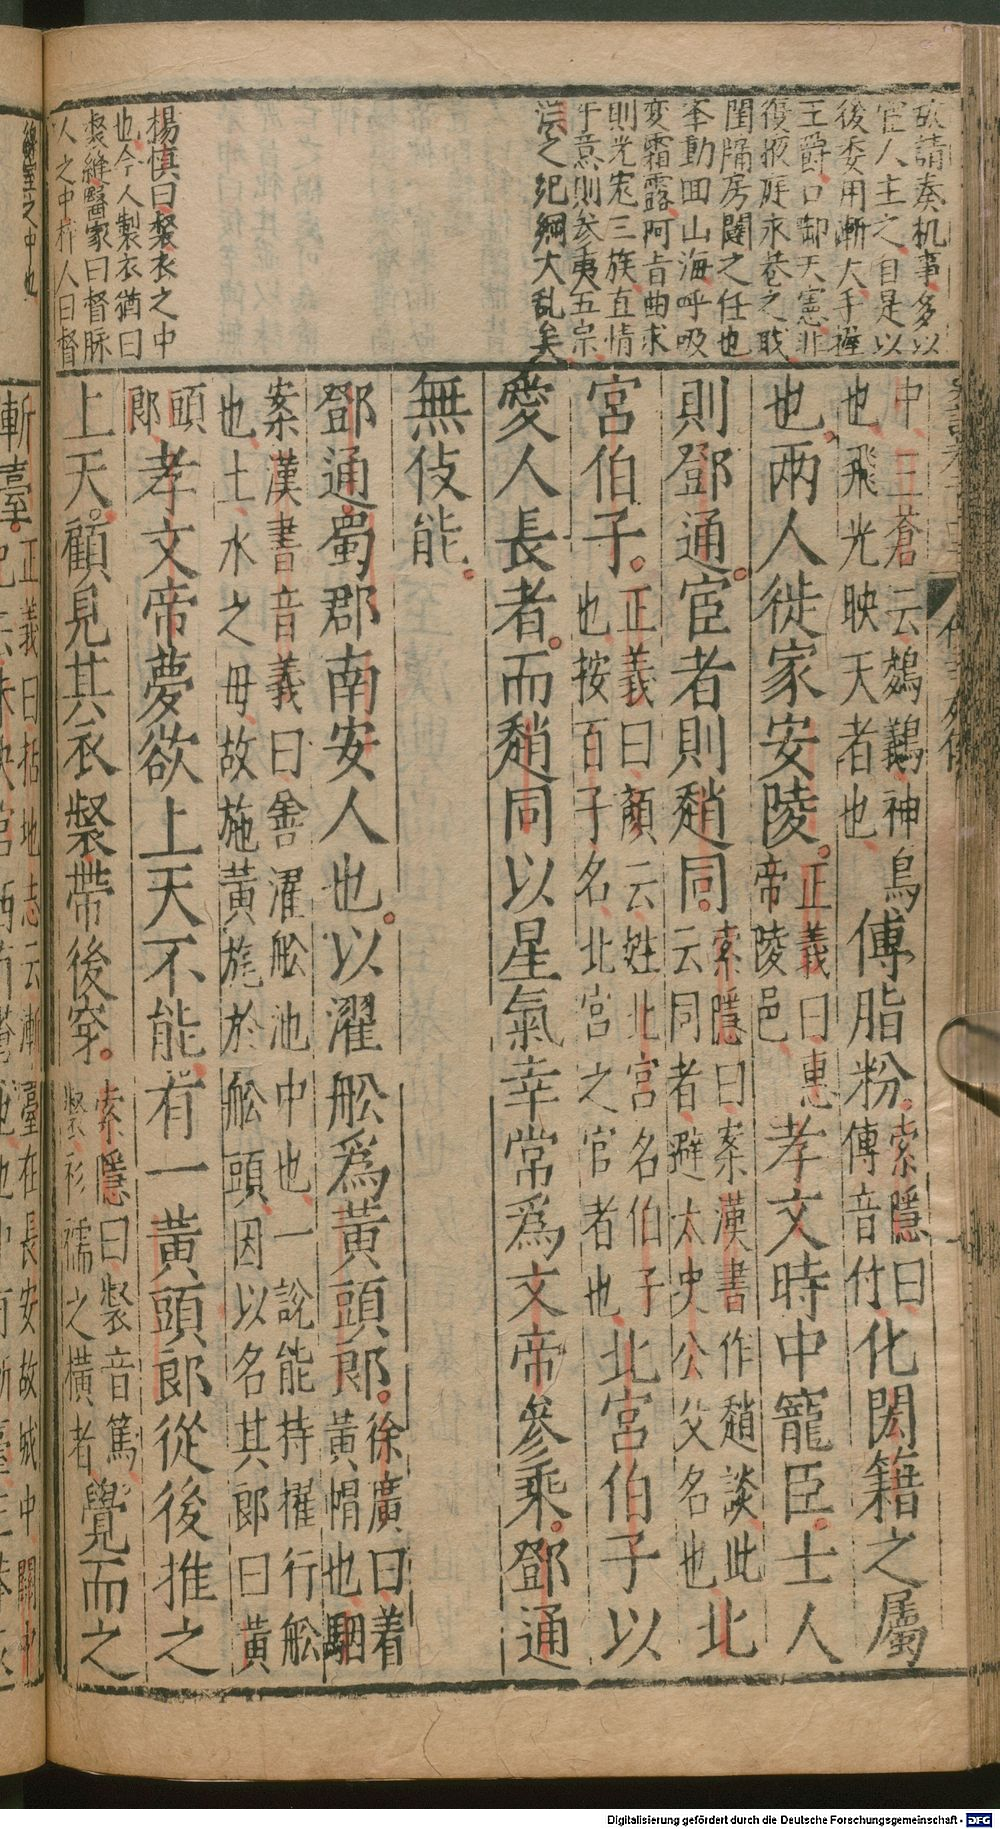 故請奏机事多以
宦人主之自是以
後委用漸大手握
王爵口卸天憲非
復掖庭永巷之职
閨牖房闥之任也
举動回山海呼吸
变霜露阿旨曲求
則光宠三族直情
忤意則参夷五宗
漢之纪綱大乱矣
楊慎曰裻衣之中
也今人製衣猶曰
裻縫醫家曰督脉
人之中梓人曰督
中三蒼云鵔鸃神鳥
也飛光映天者也
傅脂粉
索隱曰
傅音付
化閎籍之屬
也两人徙家安陵
正義曰惠
帝陵邑
孝文時中寵臣士人
則鄧通宦者則趙同
索隱曰案漢書作趙談此
云同者避太史公父名也
北
宮伯子
正義曰顏云姓北宮名伯子
也按百子名北宮之官者也
北宮伯子以
愛人長者而趙同以星氣幸常為文帝參乘鄧通
無伎能
鄧通蜀郡南安人也以濯舩為黃頭郎
徐廣曰着
黃帽也駰
案漢書音義曰善濯舩池中也一說能持擢行舩
也土水之母故施黃旄於舩頭因以名其郎曰黃
頭
郎
孝文帝夢欲上天不能有一黃頭郎從後推之
上天顧見其衣裻帶後穿
索隱曰裻音篤
裻衫襦之橫者
覺而之
漸臺
正義曰括地志云漸臺在長安故城中關中
Digitalisierung gefördert durch die Deutsche Forschungsgemeinschaft - DFG